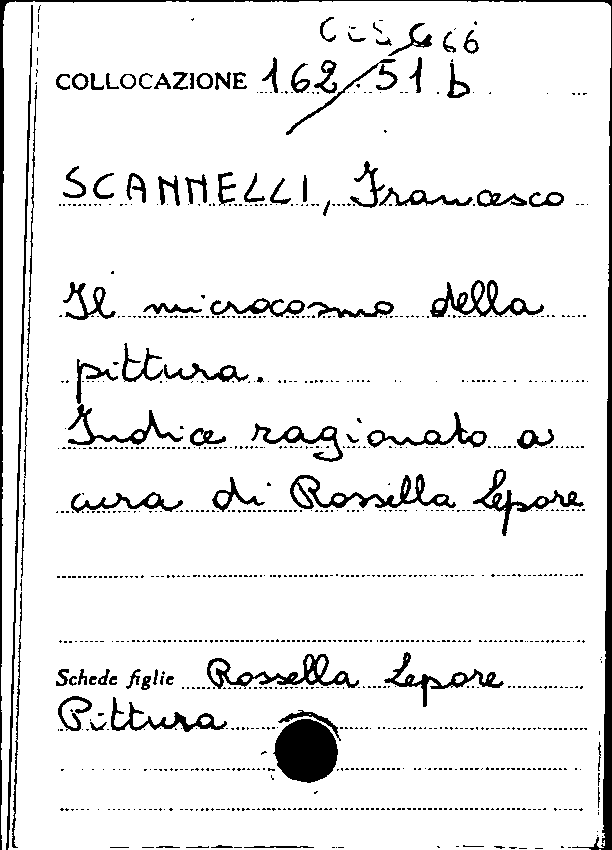 CES G 66
COLLOCAZIONE 162.51 b
SCANNELLI, Francesco
Il microcosmo della
pittura.
Indice ragionato a
cura di Rossella Lepore
Schede figlie Rossella Lepore
Pittura